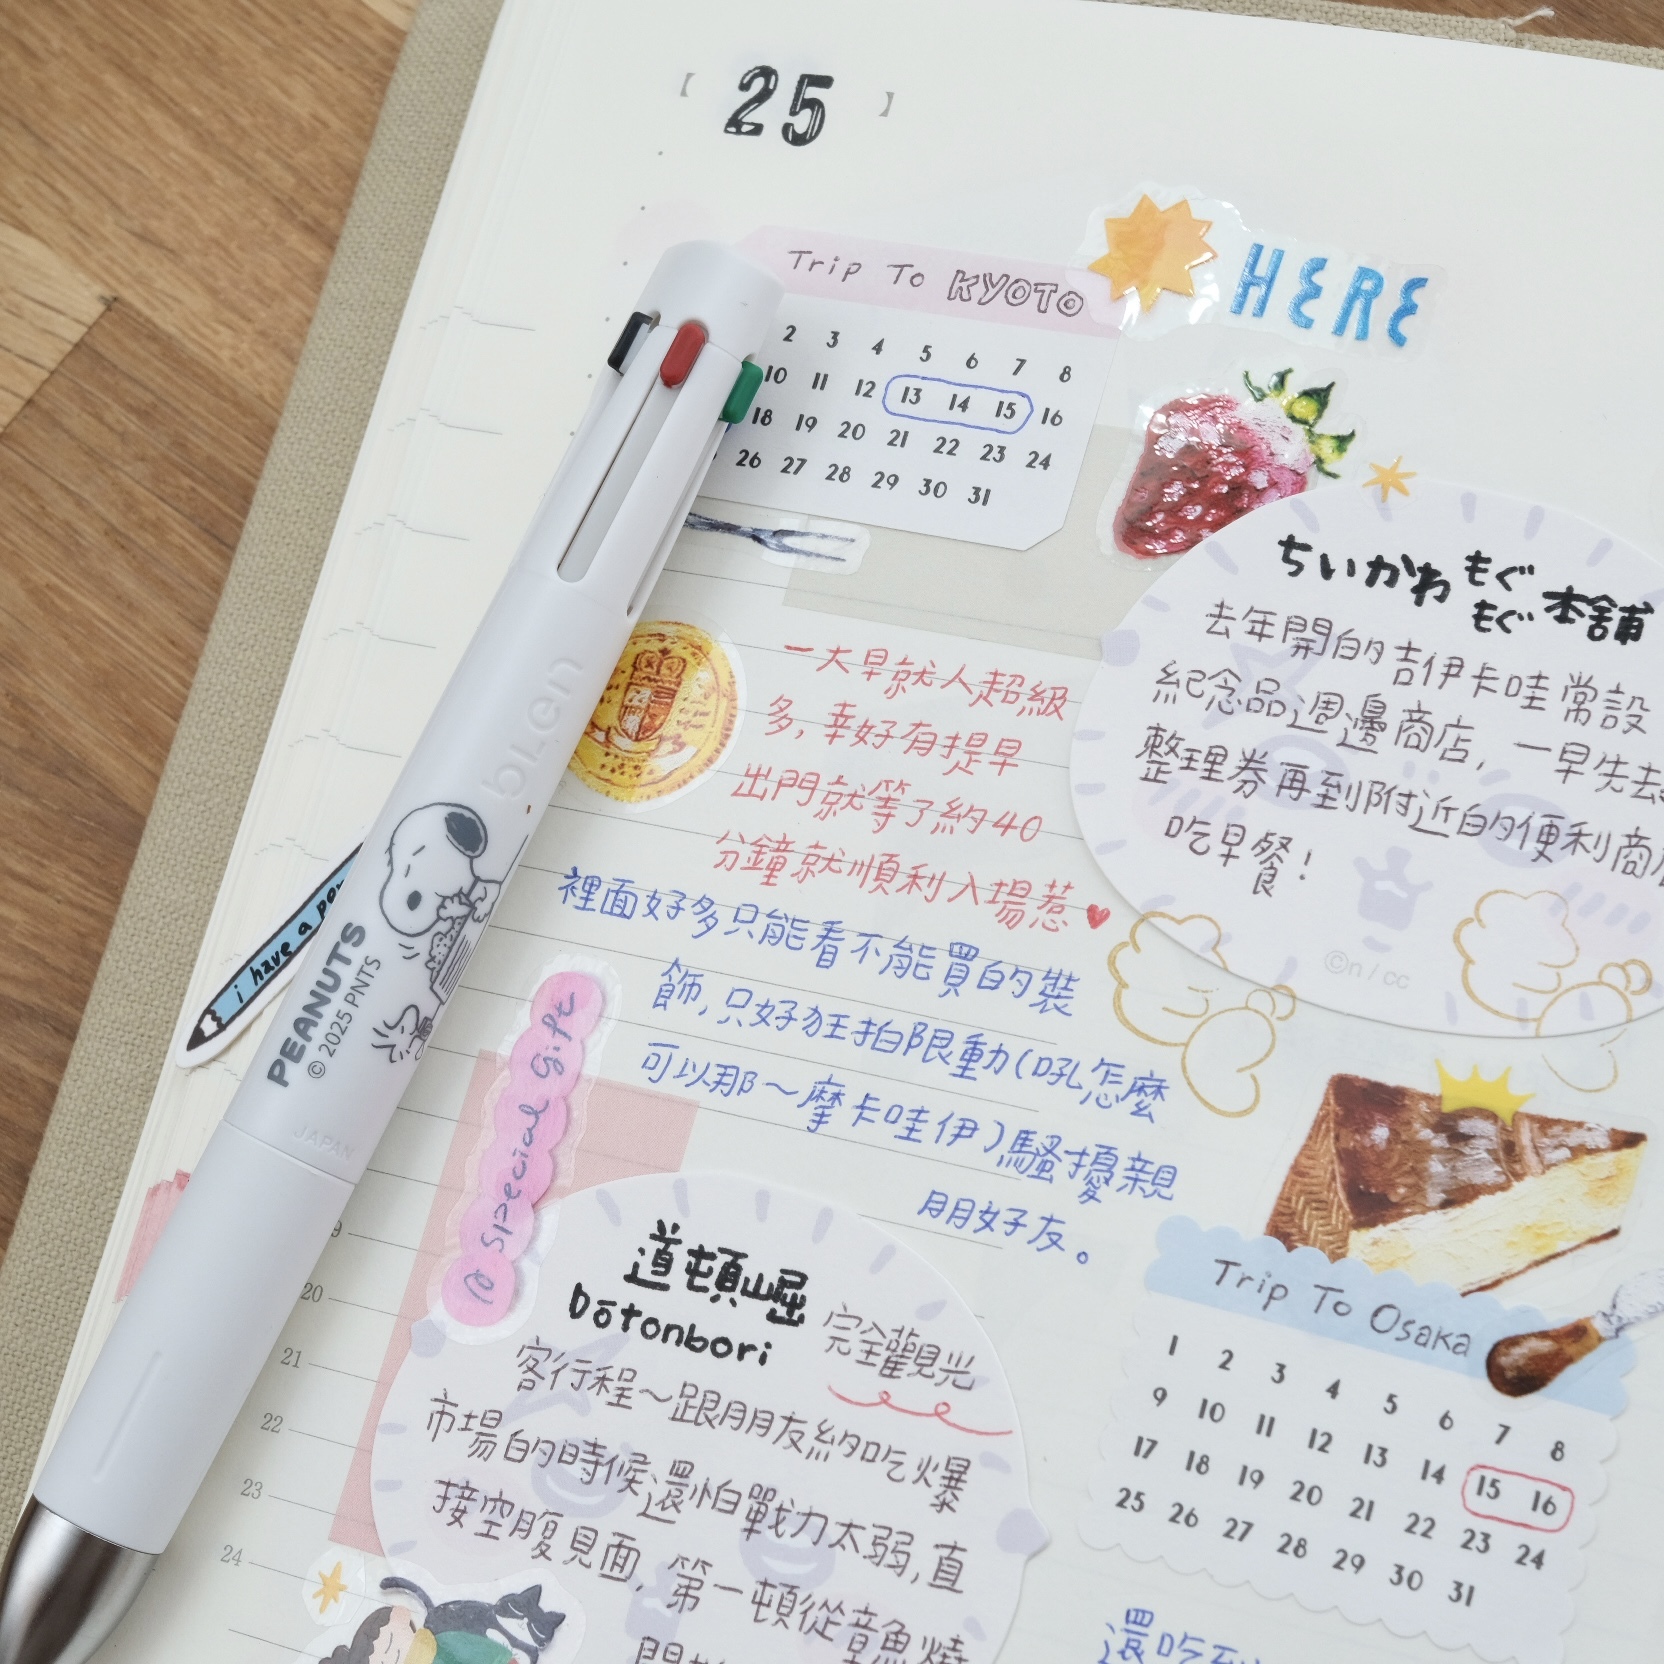 【 25 】
Trip To KYOTO
2 3 4 5 6 7 8
10 11 12 13 14 15 16
18 19 20 21 22 23 24
26 27 28 29 30 31
HERE
ちいかわ もぐもぐ 本舗
去年開的吉伊卡哇常設
紀念品週邊商店,一早先去
整理券再到附近的便利商
吃早餐!
©n/cc
一大早就人超級
多,幸好有提早
出門就等了約40
分鐘就順利入場惹♥
裡面好多只能看不能買的裝
飾,只好狂拍限動(吼怎麼
可以那~摩卡哇伊)騷擾親
朋好友。
bLen
PEANUTS
© 2025 PNTS
JAPAN
i have a
a special gift
道頓崛
Dōtonbori
完全觀光
客行程~跟朋友約吃爆
市場的時候還怕戰力太弱,直
接空腹見面,第一頓從章魚燒
開
20
21
22
23
24
Trip To Osaka
1 2 3 4 5 6 7 8
9 10 11 12 13 14 15 16
17 18 19 20 21 22 23 24
25 26 27 28 29 30 31
還吃到